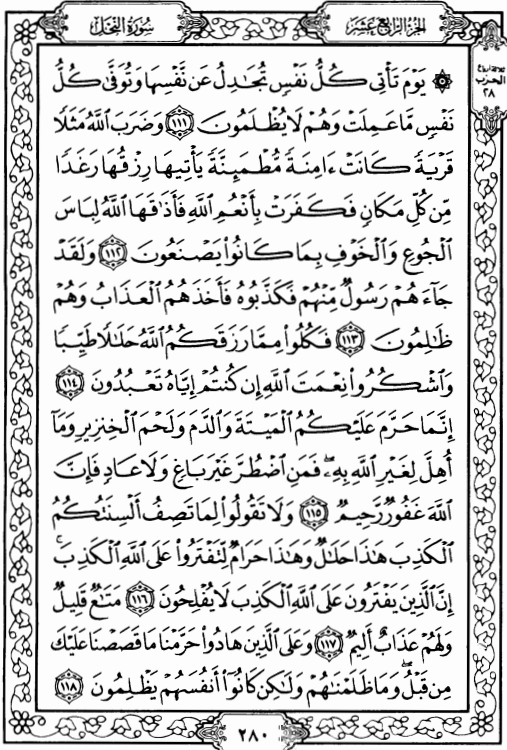 سُورَةُ النَّحۡلِ
الجُزۡءُ الرَّابِعَ عَشَرَ
ثلاثة أرباع
الحزب
٢٨
۞ يَوۡمَ تَأۡتِي كُلُّ نَفۡسٖ تُجَٰدِلُ عَن نَّفۡسِهَا وَتُوَفَّىٰ كُلُّ
نَفۡسٖ مَّا عَمِلَتۡ وَهُمۡ لَا يُظۡلَمُونَ ١١١ وَضَرَبَ ٱللَّهُ مَثَلٗا
قَرۡيَةٗ كَانَتۡ ءَامِنَةٗ مُّطۡمَئِنَّةٗ يَأۡتِيهَا رِزۡقُهَا رَغَدٗا
مِّن كُلِّ مَكَانٖ فَكَفَرَتۡ بِأَنۡعُمِ ٱللَّهِ فَأَذَٰقَهَا ٱللَّهُ لِبَاسَ
ٱلۡجُوعِ وَٱلۡخَوۡفِ بِمَا كَانُواْ يَصۡنَعُونَ ١١٢ وَلَقَدۡ
جَآءَهُمۡ رَسُولٞ مِّنۡهُمۡ فَكَذَّبُوهُ فَأَخَذَهُمُ ٱلۡعَذَابُ وَهُمۡ
ظَٰلِمُونَ ١١٣ فَكُلُواْ مِمَّا رَزَقَكُمُ ٱللَّهُ حَلَٰلٗا طَيِّبٗا
وَٱشۡكُرُواْ نِعۡمَتَ ٱللَّهِ إِن كُنتُمۡ إِيَّاهُ تَعۡبُدُونَ ١١٤
إِنَّمَا حَرَّمَ عَلَيۡكُمُ ٱلۡمَيۡتَةَ وَٱلدَّمَ وَلَحۡمَ ٱلۡخِنزِيرِ وَمَآ
أُهِلَّ لِغَيۡرِ ٱللَّهِ بِهِۦۖ فَمَنِ ٱضۡطُرَّ غَيۡرَ بَاغٖ وَلَا عَادٖ فَإِنَّ
ٱللَّهَ غَفُورٞ رَّحِيمٞ ١١٥ وَلَا تَقُولُواْ لِمَا تَصِفُ أَلۡسِنَتُكُمُ
ٱلۡكَذِبَ هَٰذَا حَلَٰلٞ وَهَٰذَا حَرَامٞ لِّتَفۡتَرُواْ عَلَى ٱللَّهِ ٱلۡكَذِبَۚ
إِنَّ ٱلَّذِينَ يَفۡتَرُونَ عَلَى ٱللَّهِ ٱلۡكَذِبَ لَا يُفۡلِحُونَ ١١٦ مَتَٰعٞ قَلِيلٞ
وَلَهُمۡ عَذَابٌ أَلِيمٞ ١١٧ وَعَلَى ٱلَّذِينَ هَادُواْ حَرَّمۡنَا مَا قَصَصۡنَا عَلَيۡكَ
مِن قَبۡلُۖ وَمَا ظَلَمۡنَٰهُمۡ وَلَٰكِن كَانُوٓاْ أَنفُسَهُمۡ يَظۡلِمُونَ ١١٨
٢٨٠